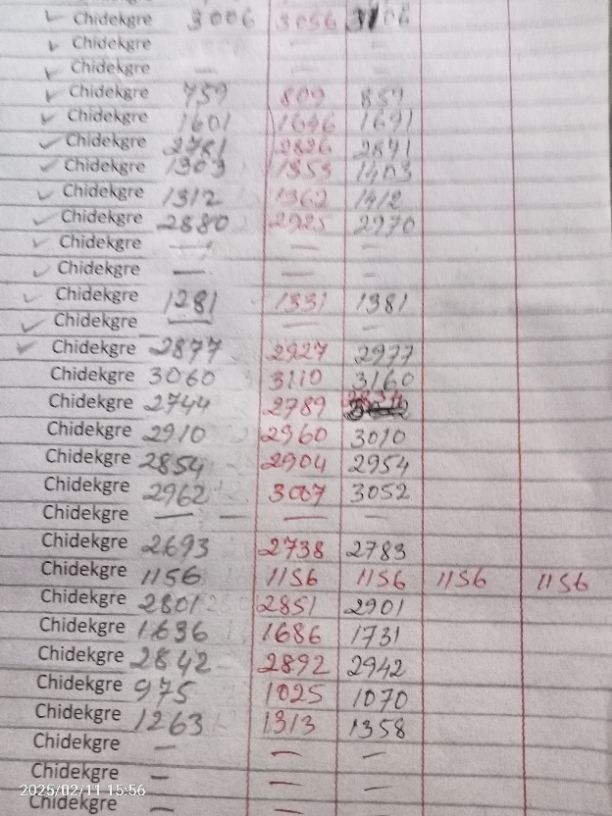 ✓ Chidekgre 3006 3056 3106
✓ Chidekgre — — —
✓ Chidekgre — — —
✓ Chidekgre 759 809 859
✓ Chidekgre 1601 1646 1691
✓ Chidekgre 2781 2826 2871
✓ Chidekgre 1303 1353 1403
✓ Chidekgre 1312 1362 1412
✓ Chidekgre 2880 2925 2970
✓ Chidekgre — — —
✓ Chidekgre — — —
✓ Chidekgre 1281 1331 1381
✓ Chidekgre — — —
✓ Chidekgre 2877 2927 2977
Chidekgre 3060 3110 3160
Chidekgre 2744 2789
Chidekgre 2910 2960 3010
Chidekgre 2854 2904 2954
Chidekgre 2962 3007 3052
Chidekgre — — — —
Chidekgre 2693 2738 2783
Chidekgre 1156 1156 1156 1156 1156
Chidekgre 2801 2851 2901
Chidekgre 1636 1686 1731
Chidekgre 2842 2892 2942
Chidekgre 975 1025 1070
Chidekgre 1263 1313 1358
Chidekgre — — —
Chidekgre — — —
Chidekgre — — —
2025/02/11 15:56